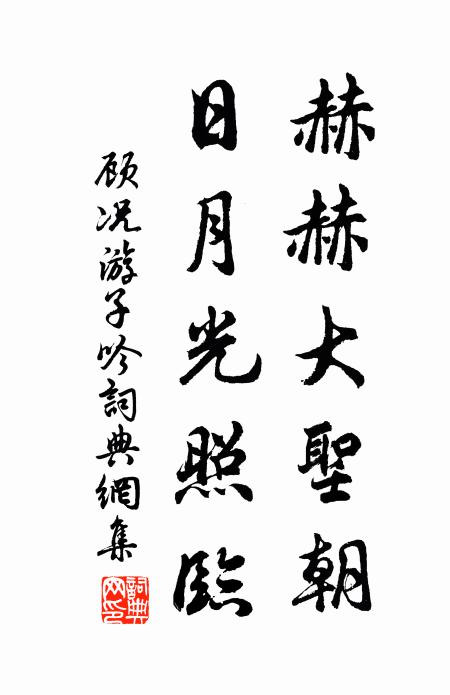 赫赫大聖朝
日月光照臨
顾况游子吟詞典網集
詞典網印